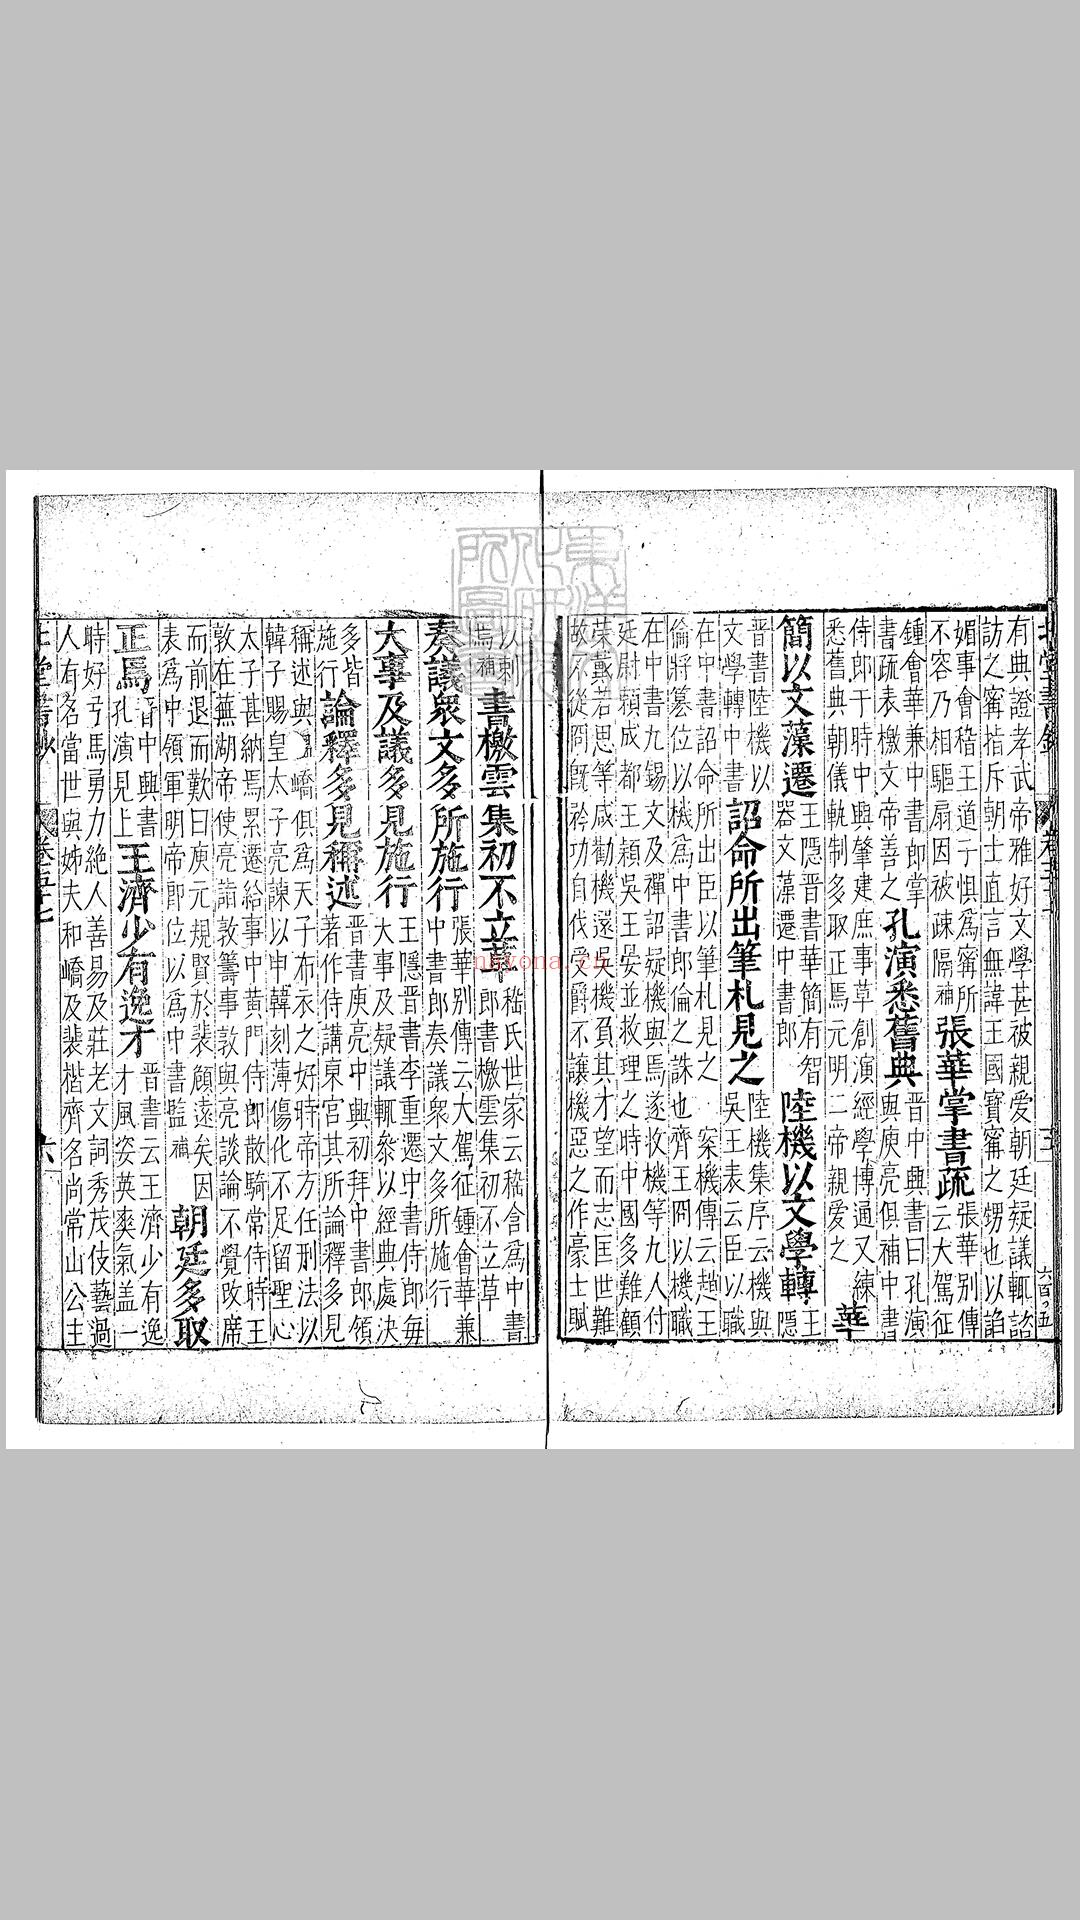 有典證孝武帝雅好文學甚被親愛朝廷疑議輒諮
訪之甯指斥朝士直言無諱王國寶甯之甥也以諂
媚事會稽王道子懼爲甯所
不容乃相驅扇因被疎隔補
張華掌書疏
張華别傳
云大駕征
鍾會華兼中書郎掌
書疏表檄文帝善之
孔演悉舊典
晋中興書曰孔演
與庾亮俱補中書
侍郎于時中興肇建庶事草創演經學博通又練
悉舊典朝儀軌制多取正焉元明二帝親愛之
華
簡以文藻遷
王隱晋書華簡有智
器文藻遷中書郎
陸機以文學轉
王
隱
晋書陸機以
文學轉中書
詔命所出筆札見之
陸機集序云機與
吳王表云臣以職
在中書詔命所出臣以筆札見之 案機傳云趙王
倫將篡位以機爲中書郎倫之誅也齊王冏以機職
在中書九錫文及禪詔疑機與焉遂收機等九人付
延尉頼成都王穎吳王晏並救理之時中國多難顧
榮戴若思等咸勸機還吳機負其才望而志匡世難
故從冏旣矜功自伐受爵不讓機惡之作豪士賦
以刺
焉補
書檄雲集初不立草
嵇氏世家云嵇含爲中書
郎書檄雲集初不立草
奏議衆文多所施行
張華别傳云大駕征鍾會華兼
中書郎奏議衆文多所施行
大事及議多見施行
王隱晋書李重遷中書侍郎每
大事及疑議輒叅以經典處決
多皆
施行
論釋多見稱述
晋書庾亮中興初拜中書郎領
著作侍講東宮其所論釋多見
稱述與
嶠俱爲
太子
天子布衣之好時帝方任刑法以
韓子賜皇太子亮諫以申韓刻薄傷化不足留聖心
太子甚納焉累遷給事中黄門侍郎散騎常侍時王
敦在蕪湖帝使亮詣敦籌事敦與亮談論不覺改席
而前退而歎曰庾元規賢於裴頠遠矣因
表爲中領軍明帝郎位以爲中書監補
朝廷多取
正焉
晋中興書
孔演見上
王濟少有逸才
晋書云王濟少有逸
才風姿英爽氣盖一
時好弓馬勇力絶人善易及莊老文詞秀茂伎藝過
人有名當世與姊夫和嶠及裴楷齊名尚常山公主
北堂書鈔
卷五十七
六
nayona.cn